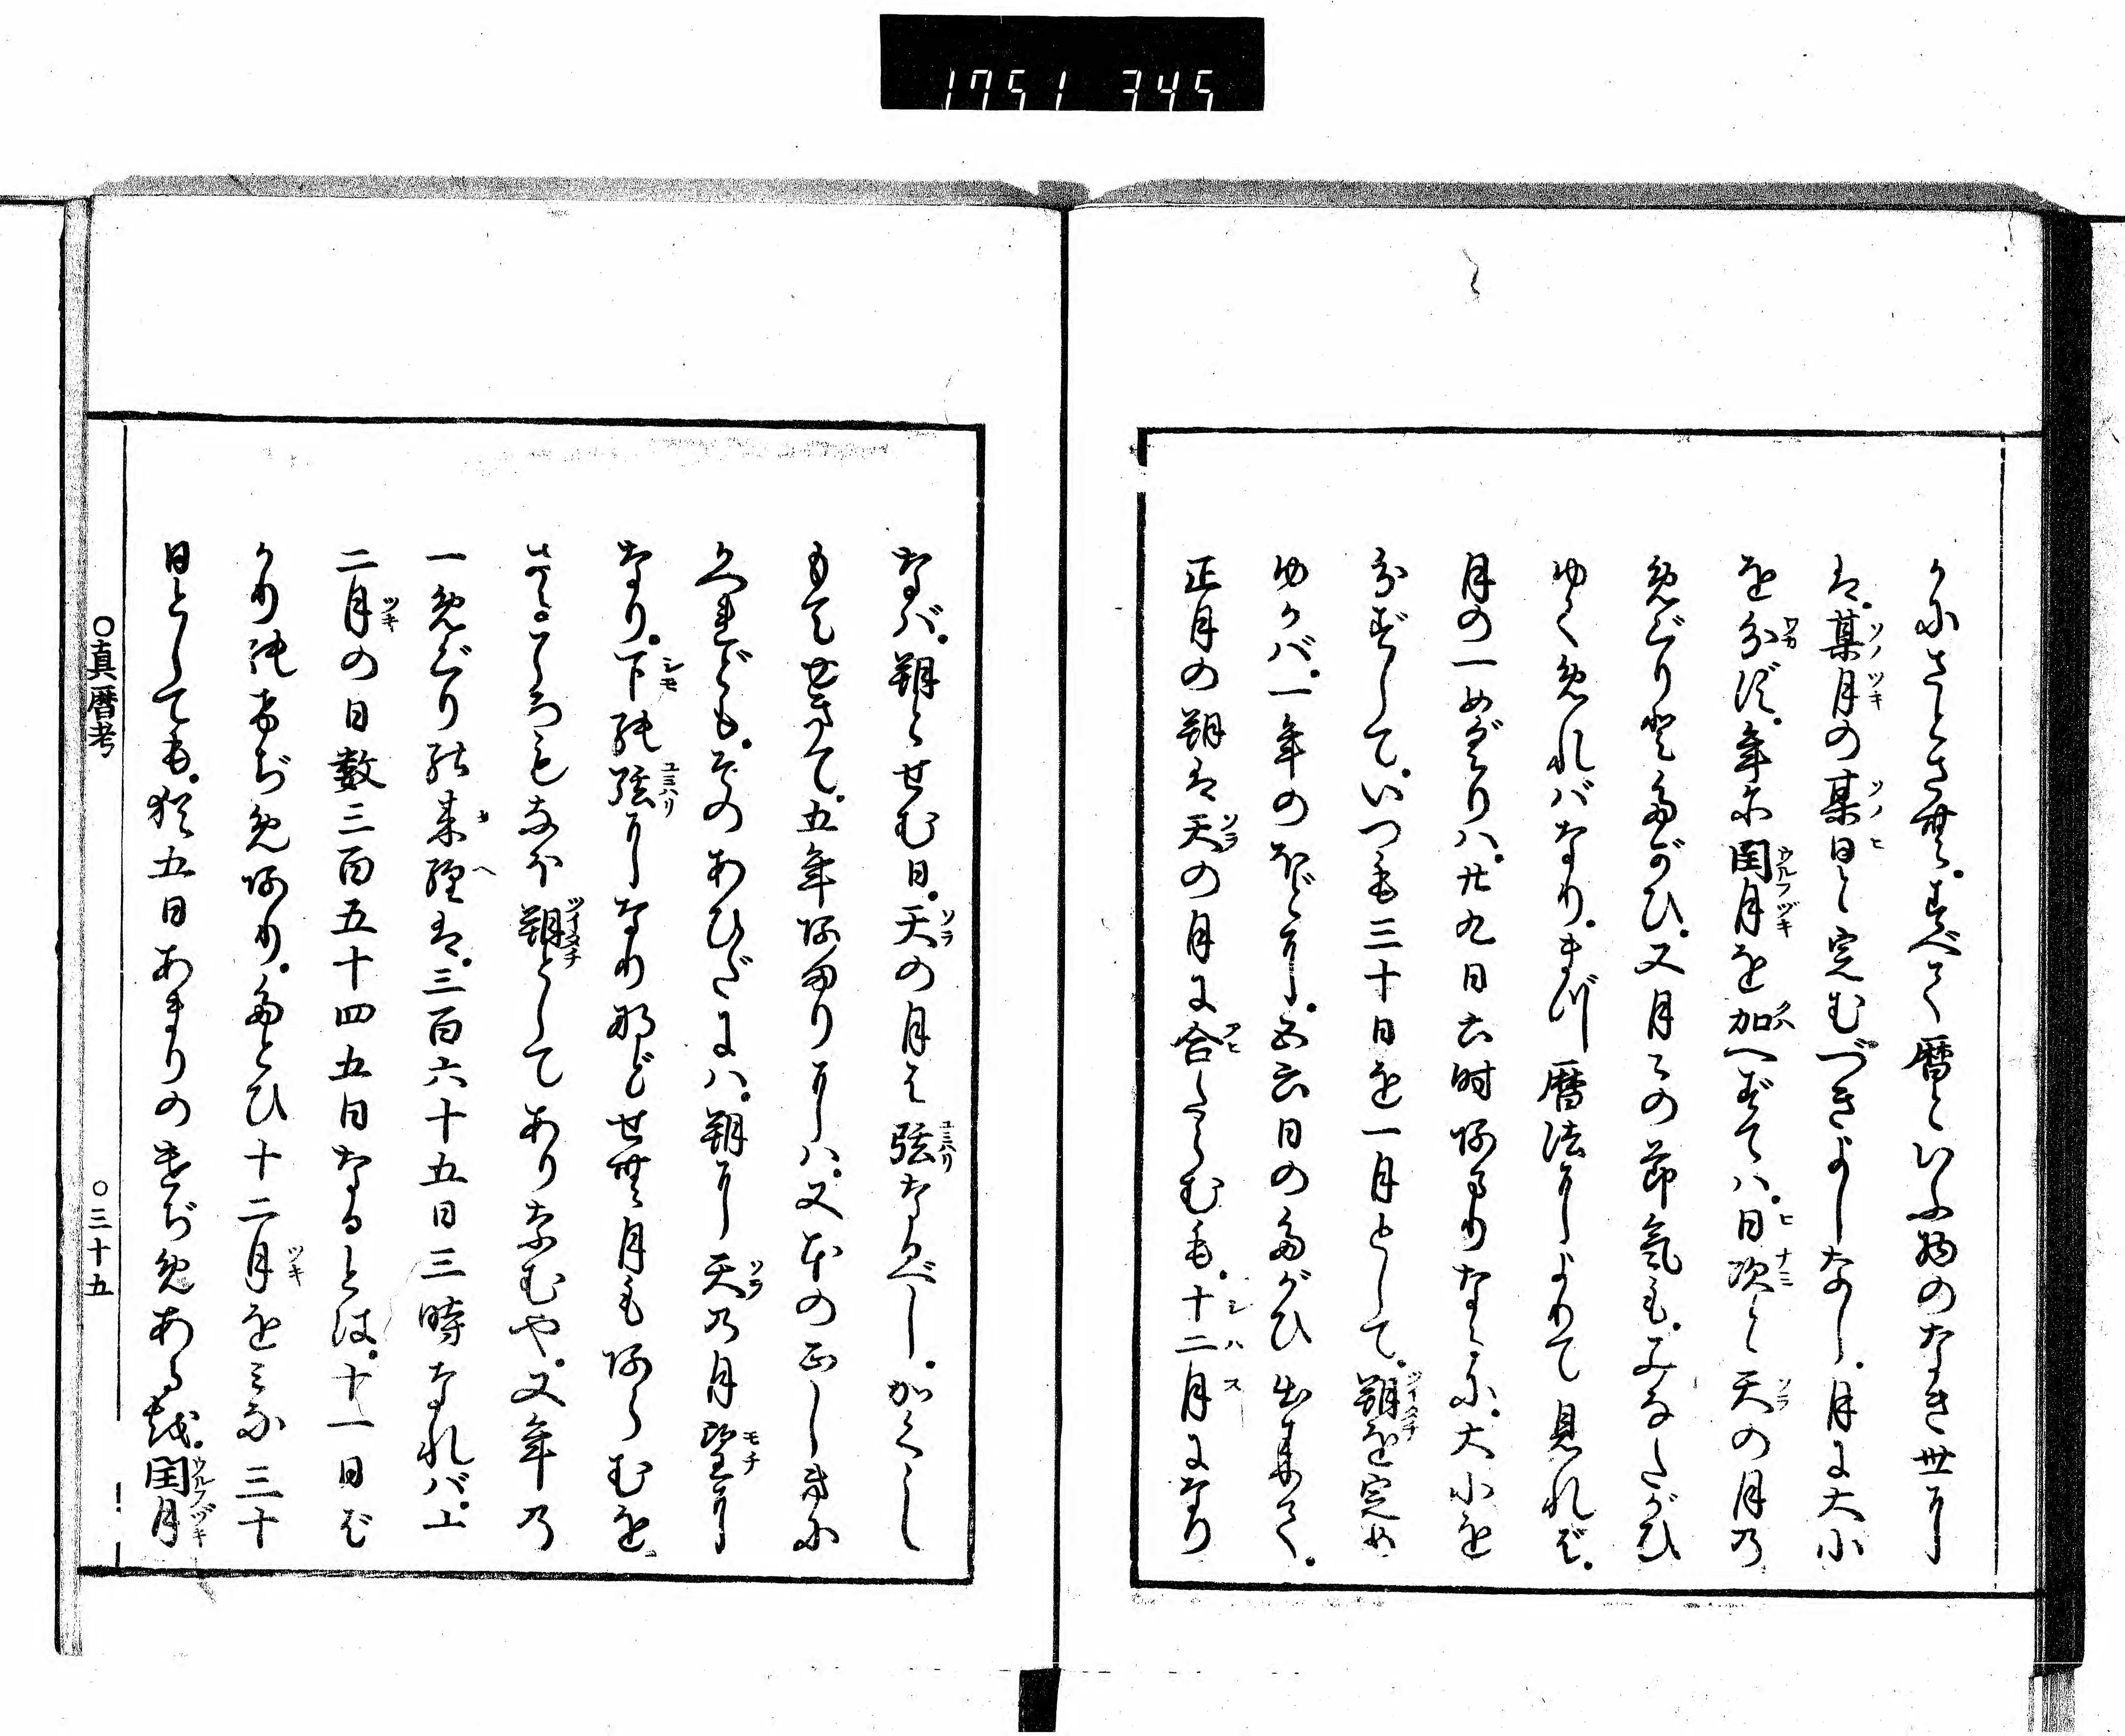 1751 345
くにさとさせむ。すべて暦といふ物のなき世に
は。某月の某日と定むづきよしなし。月に大小
を分ず。年に閏月を加へずては。日次と天の月の
めぐりとたがひ。又月々の節氣も。みなたがひ
ゆくめればなり。まづ暦法によりて見れば。
月の一めぐりハ。廿九日六時あまりなるに。大小を
分ずして。いつも三十日を一月として。朔を定め
ゆかバ。一年のほどに。五六日のたがひ出來て。
正月の朔は天の月に合たらむも。十二月になり
なバ。朔とせむ日。天の月は弦なるべし。かくし
もてゆきて。五年あまりにハ。又本の正しきに
かへれども。そのあひだにハ。朔に天の月望に
なり。下の弦になりなどせむ月もあらむを。
さるころもなほ朔としてありなむや。又年の
一めぐりの來經は。三百六十五日三時なれバ。十
二月の日數三百五十四五日なるとは。十一日ば
かりのたがひめあり。たとひ十二月をみな三十
日としても。猶五日あまりのたがひめあるを。閏月
○真暦考
○三十五